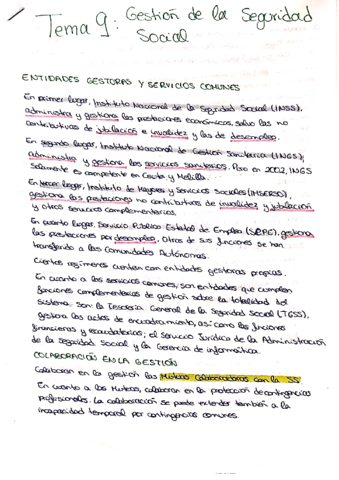 Tema 9: Gestión de la Seguridad
Social
ENTIDADES GESTORAS Y SERVICIOS COMUNES
En primer lugar, Instituto Nacional de la Seguridad Social (INSS),
administra y gestiona las prestaciones económicas, salvo las no
contributivas de jubilación e invalidez y las de desempleo.
En segundo lugar, Instituto Nacional de Gestión Sanitaria (INGS),
administra y gestiona los servicios sanitarios. Pero en 2002, INGS
Solamente es competente en Ceuta y Melilla.
En tercer lugar, Instituto de Mayores y Servicios Sociales (IMSERSO),
gestiona las prestaciones no contributivas de invalidez y jubilación
y otros servicios complementarios.
En cuarto lugar, Servicio Público Estatal de Empleo (SEPE), gestiona
las prestaciones por desempleo. Otras de sus funciones se han
transferido a las Comunidades Autónomas.
Ciertos regímenes cuentan con entidades gestoras propias.
En cuanto a los servicios comunes, son entidades que cumplen
funciones complementarias de gestión sobre la totalidad del
sistema. Son: la Tesorería General de la Seguridad Social (TGSS),
gestiona los actos de encuadramiento, así como las funciones
financieras y recaudatorias; el Servicio Jurídico de la Administración
de la Seguridad Social y la Gerencia de informática.
COLABORACIÓN EN LA GESTIÓN
Colaboran en la gestión las Mutuas Colaboradoras con la SS
En cuanto a las Mutuas, colaboran en la protección de contingencias
profesionales. La colaboración se puede extender también a la
incapacidad temporal por contingencias comunes.